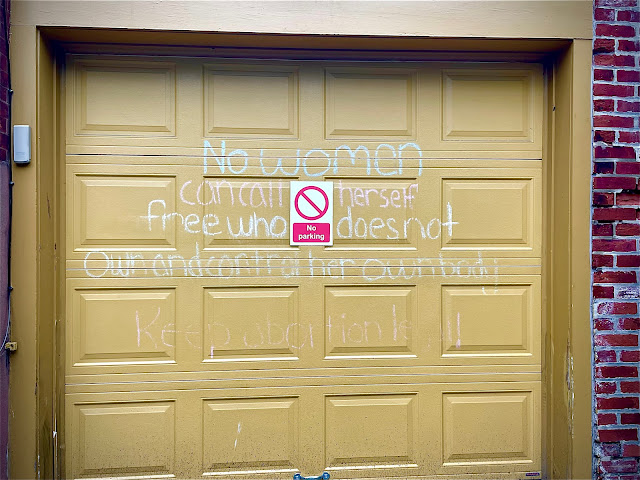 No women
can call herself
free who does not
No
parking
Own and control her own body
Keep abortion legal!